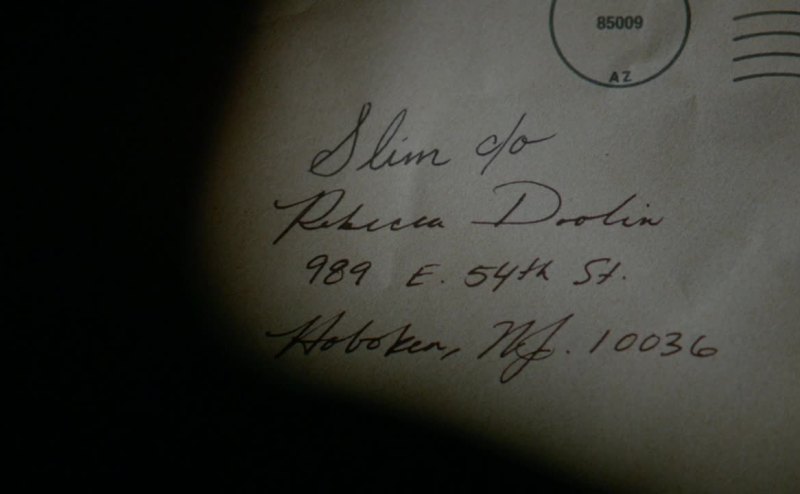 85009
AZ
Slim c/o
Rebecca Doolin
989 E. 54th St.
Hoboken, NJ. 10036